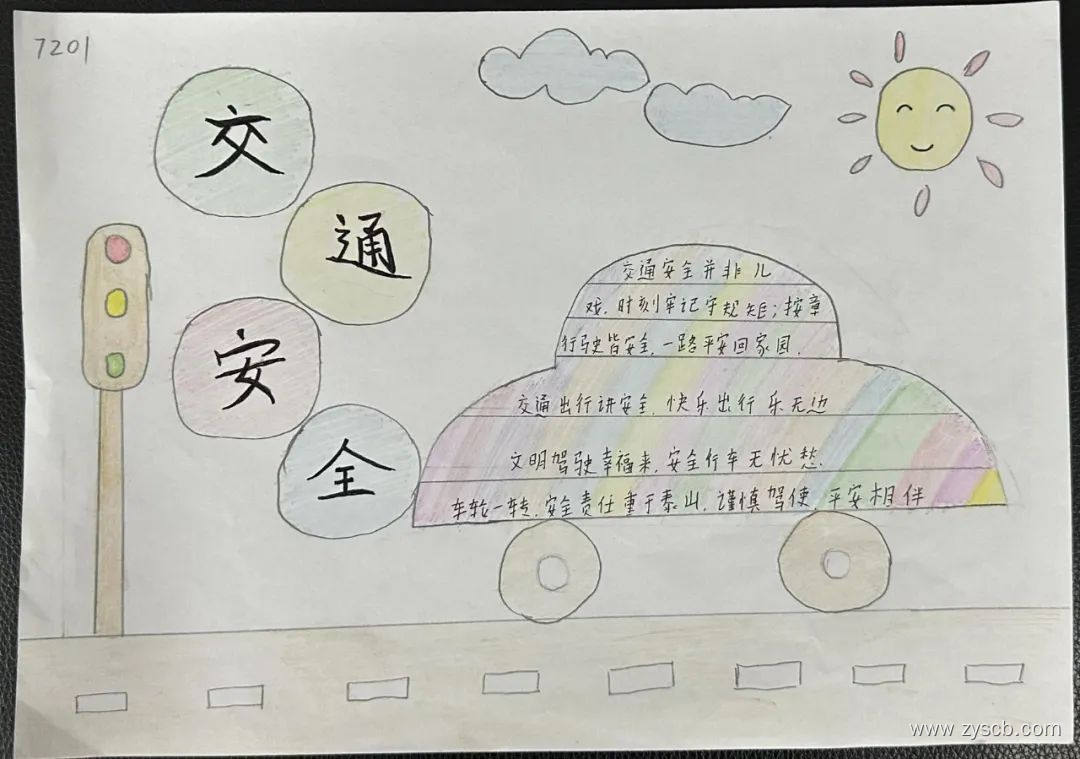 7201
交
通
安
全
交通安全并非儿
戏,时刻牢记守规矩;按章
行驶皆安全,一路平安回家园.
交通出行讲安全,快乐出行乐无边
文明驾驶幸福来,安全行车无忧愁.
车轮一转,安全责任重于泰山,谨慎驾使,平安相伴
www.zyscb.com